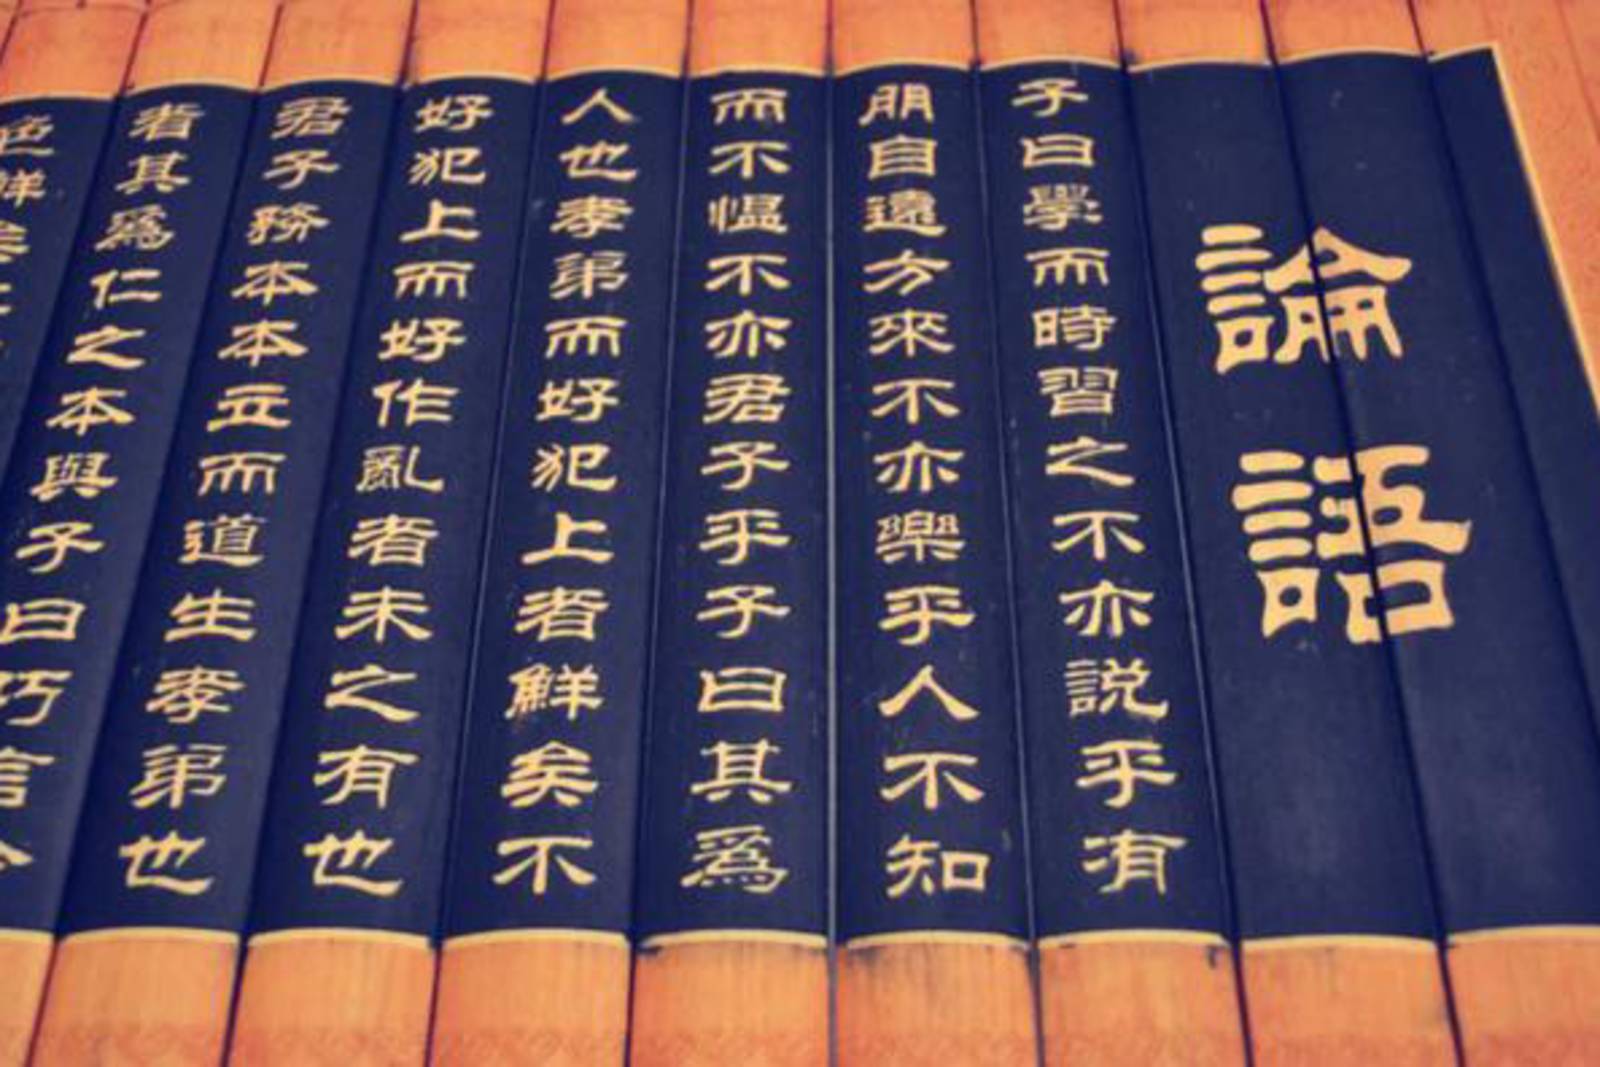 論語
子曰學而時習之不亦説乎有
朋自遠方來不亦樂乎人不知
而不愠不亦君子乎子曰其爲
人也孝弟而好犯上者鮮矣不
好犯上而好作亂者未之有也
君子務本本立而道生孝弟也
者其爲仁之本與子曰巧言令
色鮮矣